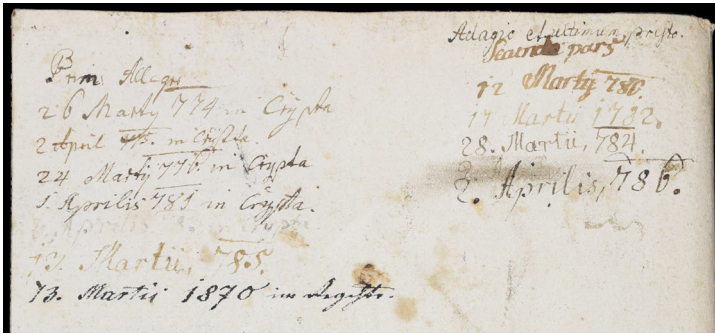 Prim: Allegro
26 Martij 774 in Crypta
2 April 775. in Crypta.
24 Martij 776. in Crypta
1. Aprilis 781 in Crypta.
Aprilis in Crypta
13. Martii, 785.
13. Martii 1870 im
Adagio et ultimum presto.
Secunda pars
12 Martij 780.
17 Martii 1782.
28. Martii, 784.
2. Aprilis, 786.